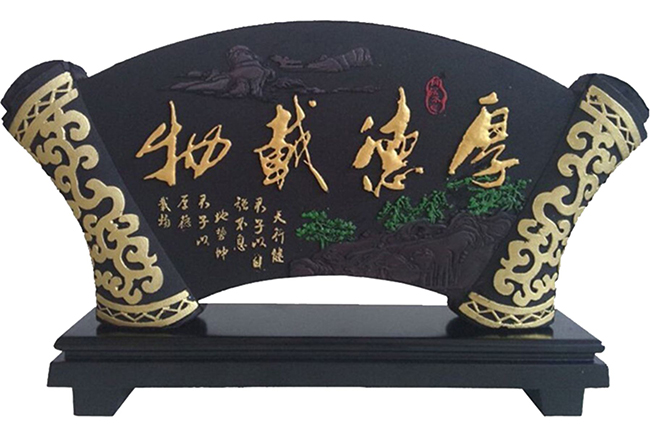 厚德載物
天行健
君子以自
强不息
地势坤
君子以
厚德
載物